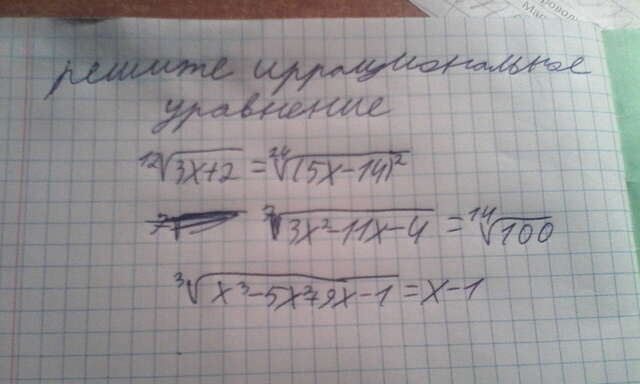 решите иррациональное
уравнение
¹²√(3x+2) = ²⁴√((5x-14)²)
⁷√(3x²-11x-4) = ¹⁴√100
³√(x³-5x²+9x-1) = x-1